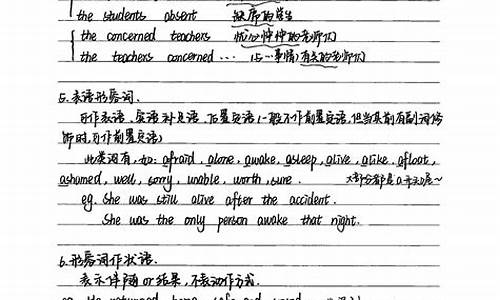 the students absent 缺席的学生
the concerned teachers 忧心忡忡的老师们
the teachers concerned ... (与…事情)有关的老师们
5. 表语形容词.
可作表语、宾语补足语、后置定语(一般不作前置定语,但当其前有副词修
饰时,可作前置定语)
此类词有,如: afraid, alone, awake, asleep, alive, alike, afloat,
ashamed, well, sorry, unable, worth, sure. 大部分都是a开头的~
eg. She was still alive after the accident.
She was the only person awake that night.
6. 形容词作状语.
表示伴随 or 结果, 不表动作方式.
eg. He returned home safe and sound.